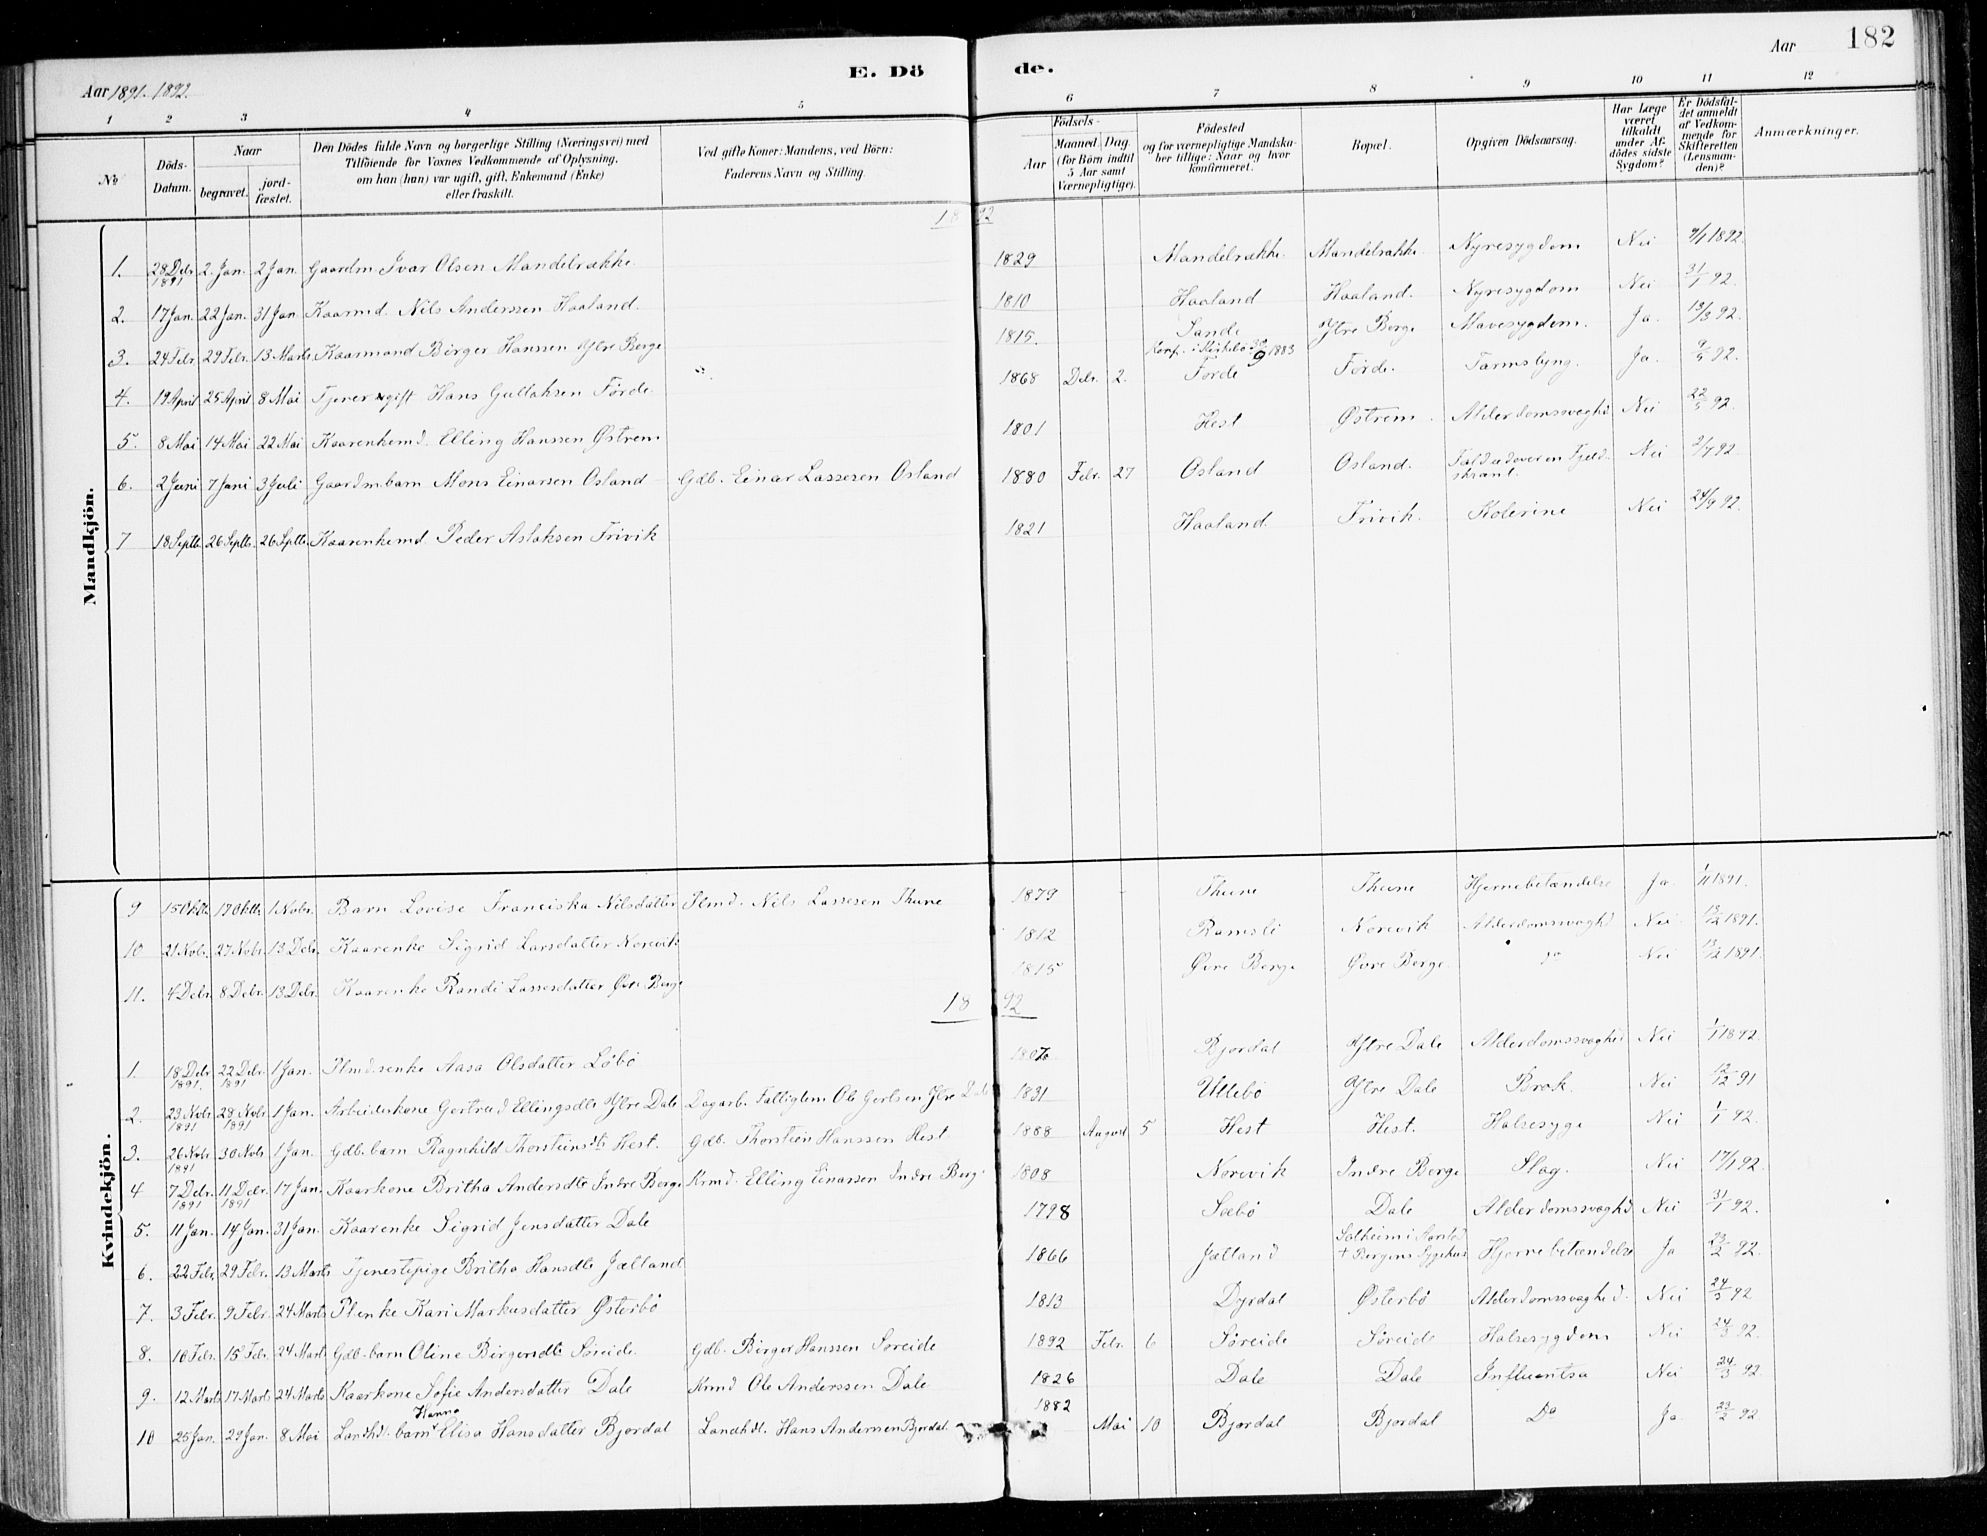 E. Döde.
Aar 182
Aar 1891. 1892.
1 2 3 4 5 6 7 8 9 10 11 12
№
Döds-Datum.
Naar
begravet.
jordfæstet.
Den Dödes fulde Navn og borgerlige Stilling (Næringsvei) med Tilföiende for Voxnes Vedkommende af Oplysning, om han (hun) var ugift, gift, Enkemand (Enke) eller fraskilt.
Ved gifte Koner: Mandens, ved Börn: Faderens Navn og Stilling.
Födsels-
Aar
Maaned. Dag.
(for Börn indtil 5 Aar samt Værnepligtige).
Födested og for værnepligtige Mandskaber tillige: Naar og hvor konfirmeret.
Bopæl.
Opgiven Dödsaarsag.
Har Læge været tilkaldt under Afdödes sidste Sygdom?
Er Dödsfaldet anmeldt af Vedkommende for Skifteretten (Lensmanden)?
Anmærkninger.
Mandkjön.
1892
1. 28 Debr. 1891 2. Jan. 2 Jan. Gaardm. Ivar Olsen Mandelrække. 1829 Mandelrække. Mandelrække. Nyresygdom Nei 1892.
2. 17 Jan. 22 Jan. 31 Jan. Kaarmd. Nils Anderssen Haaland. 1810 Haaland Haaland. Nyresygdom Nei 31/1 92.
3. 24 Febr. 29 Febr. 13 Marts Kaarmand Birger Hanssen Ytre Berge 1815. Sande Ytre Berge Mavesygdom. Ja. 13/3 92.
4. 19 April 25 April 8 Mai Tjener ugift Hans Gullaksen Förde. 1868 Debr. 2. Förde Konf. i Kirkebö 30/9 1883 Förde. Tarmslyng. Ja. 92.
5. 8 Mai 14 Mai 22 Mai Kaarenkemd. Elling Hanssen Østrem 1801 Hest Østrem. Alderdomssvaghd. Nei 22/5 92.
6. 2 Juni 7 Juni 3 Juli Gaardm. barn Mons Einarsen Osland Gdb. Einar Lassesen Osland 1880 Febr. 27 Osland Osland. Faldt udover en Fjeldskrænt. Nei 2/7 92.
7 18 Septbr. 26 Septbr. 26 Septbr. Kaarenkemd Peder Aslaksen Trivik 1821 Haaland Trivik. Kolerine Nei 24/9 92.
Kvindekjön.
9 15 Oktbr. 17 Oktbr. 1 Novbr. Barn Lovise Franciska Nilsdatter Plmd. Nils Lassesen Thune 1879 Thune Thune Hjernebetændelse Ja. 1/11 1891.
10 21 Nobr. 27 Nobr. 13 Debr. Kaarenke Sigrid Larsdatter Norevik 1812 Ramsli Norevik Alderdomssvaghd Nei 13/12 1891.
11. 4 Debr. 8 Debr. 13 Debr. Kaarenke Randi Lassesdatter Øvre Berge 1815 Øvre Berge Øvre Berge do Nei 13/12 1891.
1892
1. 18 Debr. 1891. 22 Debr. 1891 1 Jan. Plmdsenke Aasa Olsdatter Löbö Bjordal Ytre Dale Alderdomssvaghed Nei 1/1 1892.
2. 23 Nobr. 1891 28 Nobr. 1891 1 Jan. Arbeiderkone Gertrud Ellingsdtr. Ytre Dale Dagarb. Fattiglem Ole Gerlsen Ytre Dale 1831 Ullebö Ytre Dale Brok. Nei 12/12 91
3. 26 Nobr. 1891 30 Nobr. 1 Jan. Gdb. barn Ragnhild Thorsteinsdtr Hest. Gdb. Thorstein Hanssen Hest 1888 August 5 Hest Hest. Halsesyge Nei 1/1 92.
4 7 Debr. 1891 11 Debr. 1891 17 Jan. Kaarkone Britha Andersdtr Indre Berge Krmd. Elling Einarsen Indre Berge 1808 Norevik Indre Berge Slag. Nei 17/1 92.
5. 11 Jan. 14 Jan. 31 Jan. Kaarenke Sigrid Jensdatter Dale 1798 Sæbö Dale Alderdomssvaghd Nei 31/1 92.
6. 22 Febr. 29 Febr. 13 Marts Tjenestepige Britha Hansdtr Jælland 1866 Jælland Solheim i Aarstad † Bergens Sygehus Hjernebetændelse Ja 92.
7. 3 Febr. 9 Febr. 24 Marts Plenke Kari Markusdatter Østerbö 1813 Dyrdal Østerbö Alderdomssvaghed. Nei 24/3 92
8. 10 Febr. 15 Febr. 24 Marts Gdb. barn Oline Birgersdtr Söreide. Gdb. Birger Hanssen Söreide 1892 Febr. 6 Söreide Söreide Halsesygdom Nei 24/3 92.
9. 12 Marts 17 Marts 24 Marts Kaarkone Sofie Andersdatter Dale Krmd Ole Anderssen Dale 1826 Dale Dale Influentsa Nei 24/3 92.
10 25 Jan. 29 Jan. 8 Mai Landhd. barn Hanna Elisa Hansdatter Bjordal Landhdl. Hans Anderssen Bjordal 1882 Mai 10 Bjordal Bjordal Do Ja 92